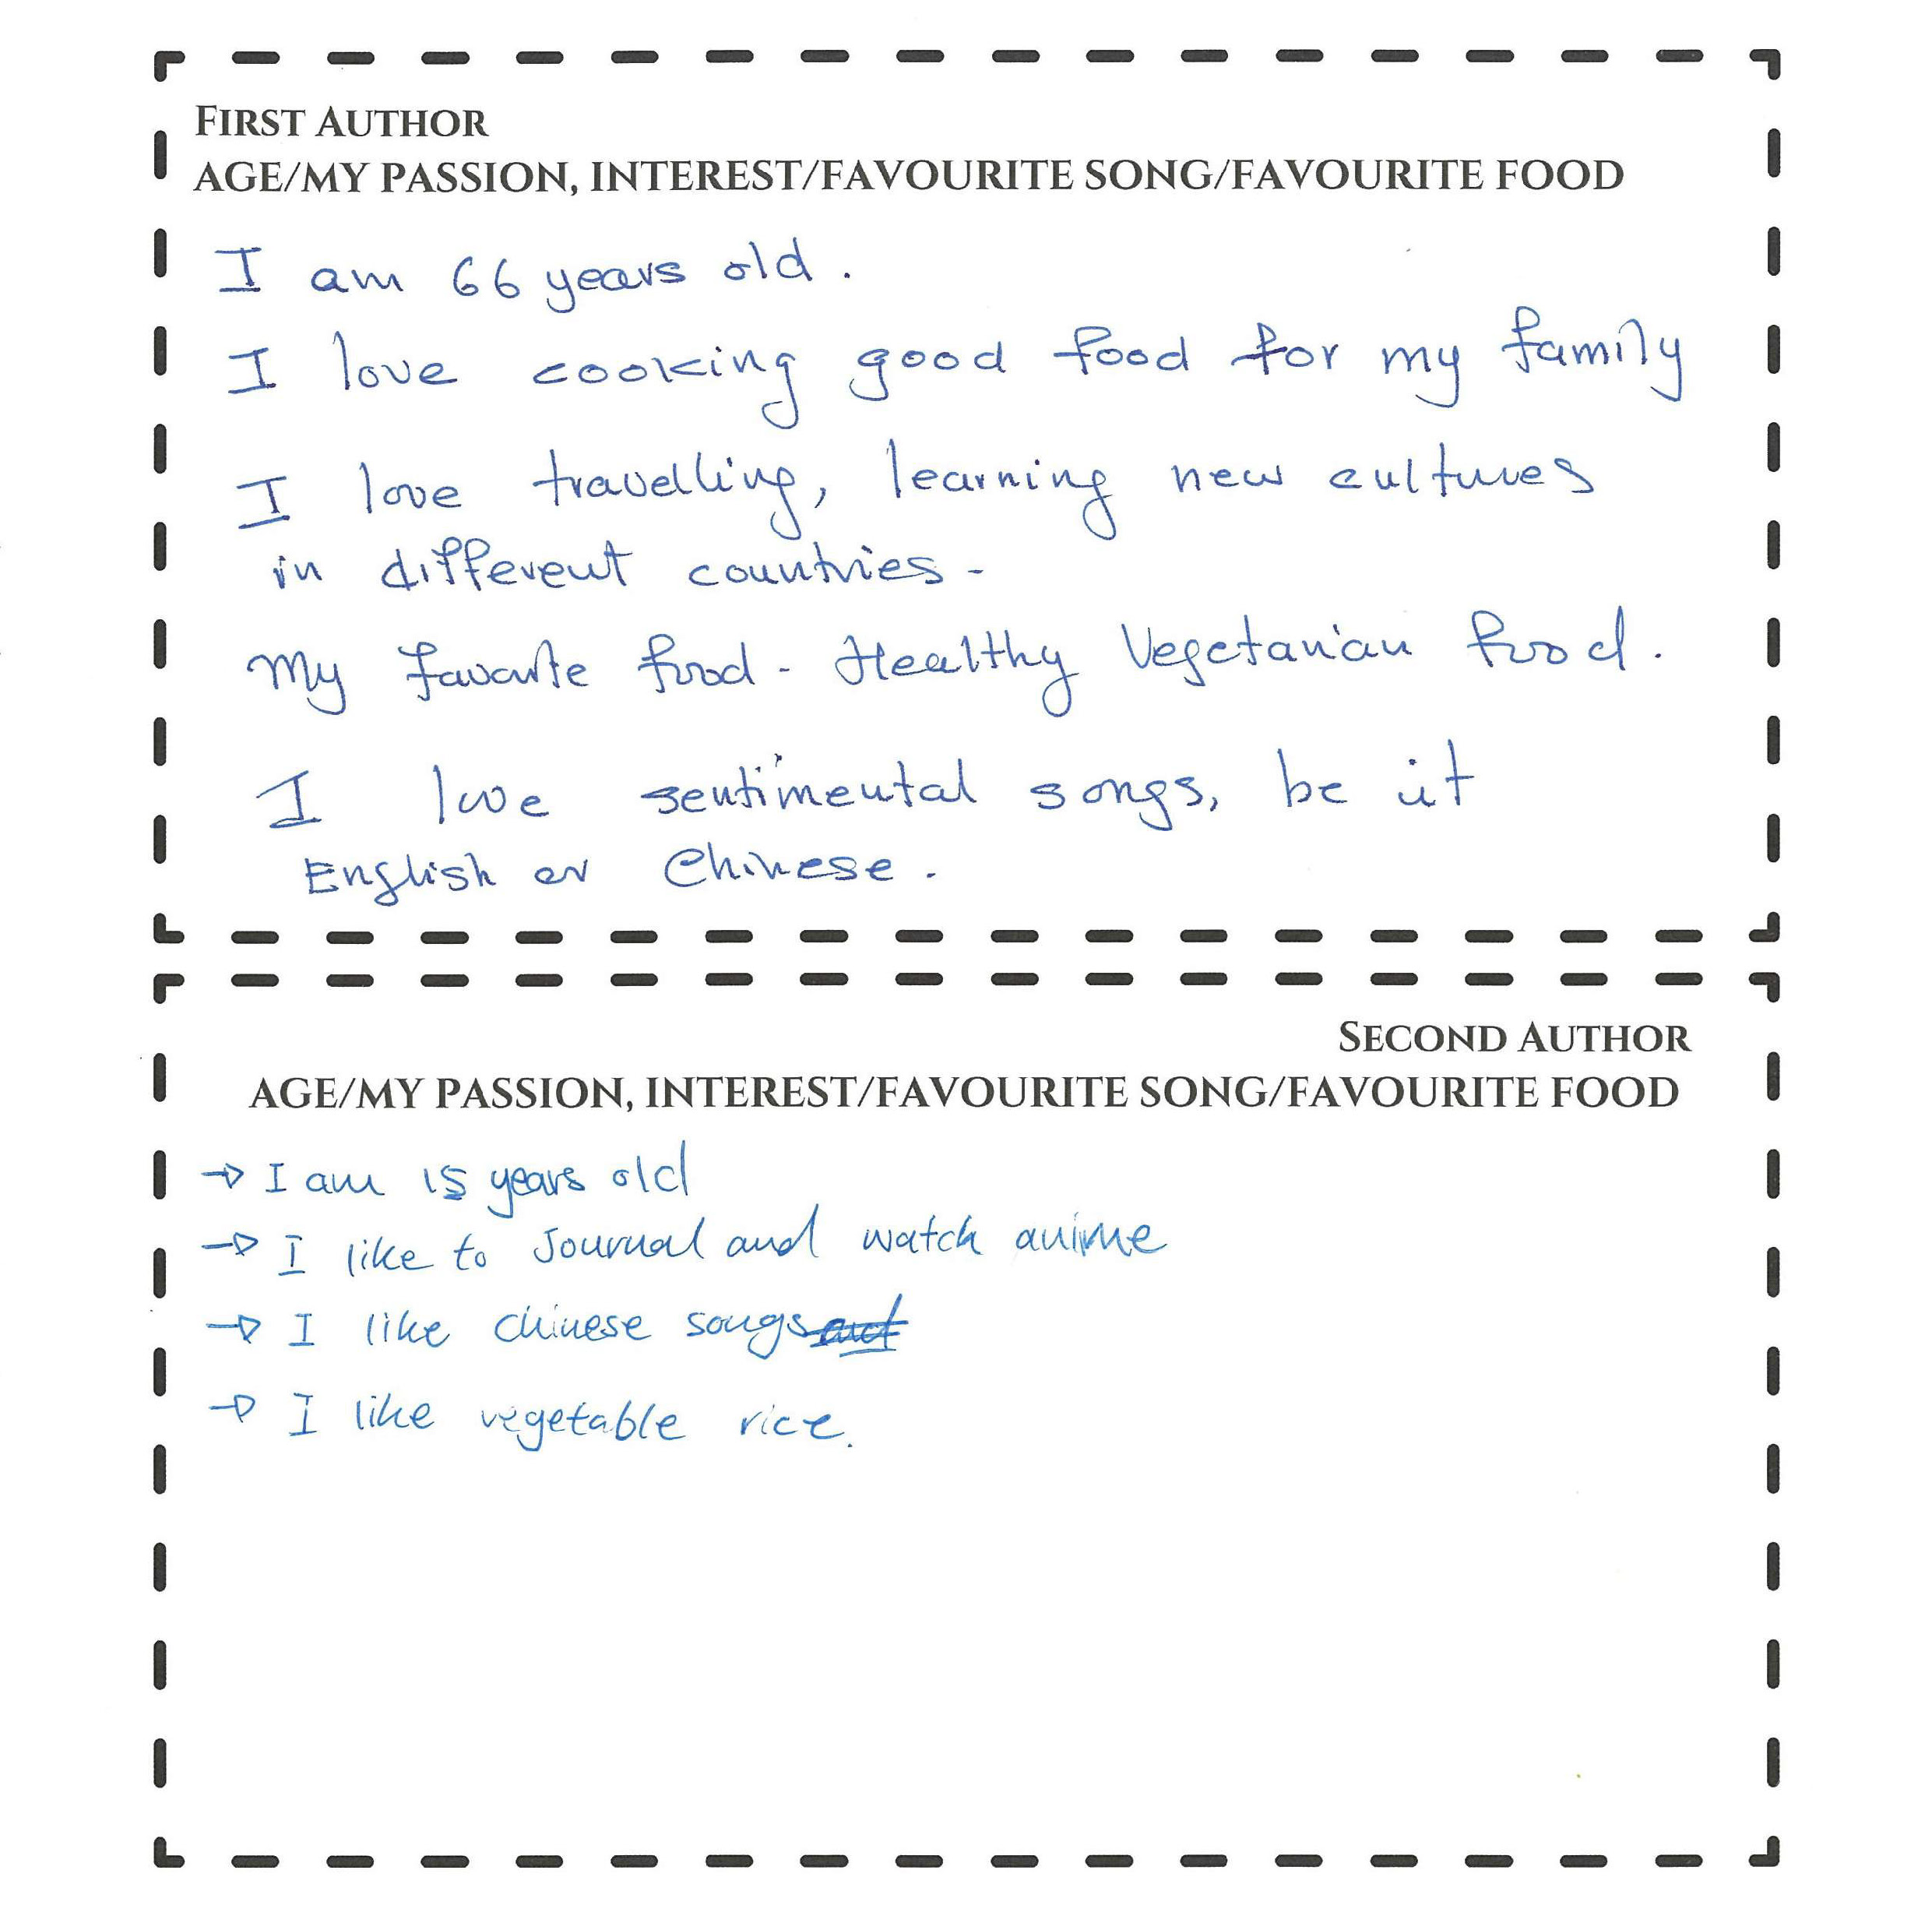 FIRST AUTHOR
AGE/MY PASSION, INTEREST/FAVOURITE SONG/FAVOURITE FOOD
I am 66 years old.
I love cooking good food for my family
I love travelling, learning new cultures
in different countries -
My favorite food - Healthy Vegetarian food.
I love sentimental songs, be it
English or Chinese.
SECOND AUTHOR
AGE/MY PASSION, INTEREST/FAVOURITE SONG/FAVOURITE FOOD
→ I am 15 years old
→ I like to Journal and watch anime
→ I like chinese songs and
→ I like vegetable rice.